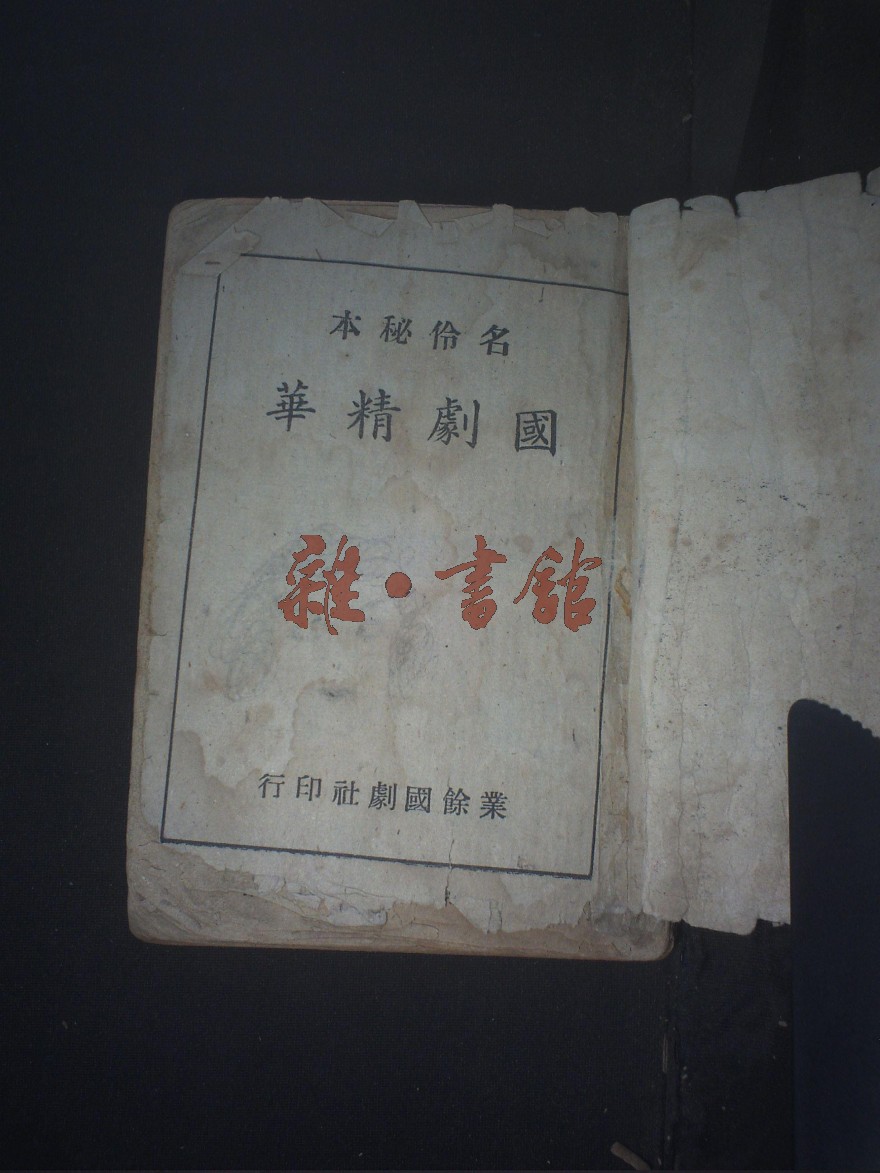 名伶秘本
國劇精華
雜·書館
業餘國劇社印行